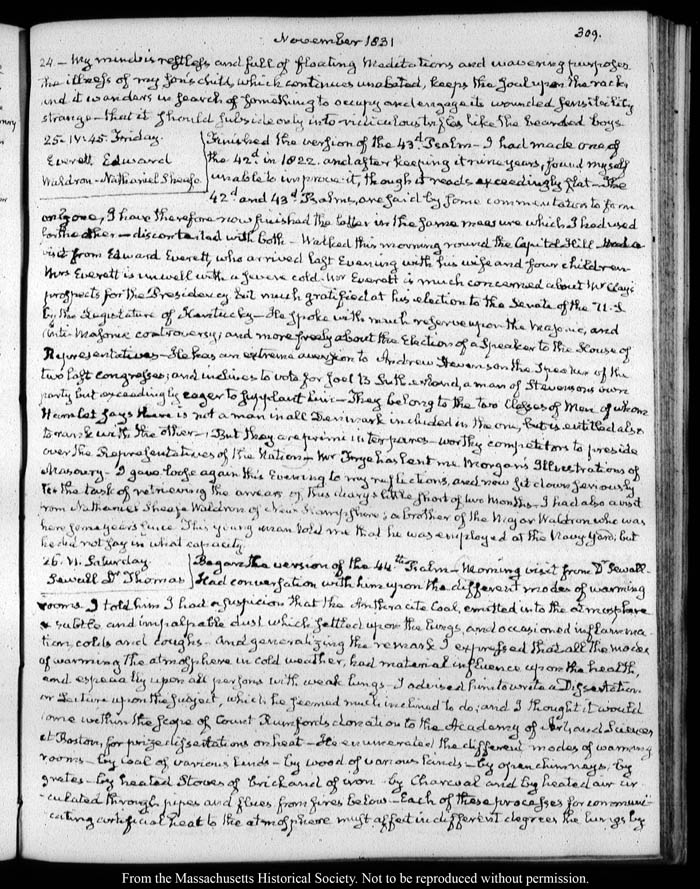 November 1831
309.
24 - My mind is restless and full of floating meditations and wavering purposes.
The illness of my Son's child, which continues unabated, keeps the soul upon the rack,
and it wanders in search of something to occupy and engage its wounded sensibility
strange - that it should subside only into ridiculous trifles like the bearded boys.
25 - IV:45. Friday.
Everett Edward
Waldron - Nathaniel Sheafe
Finished the version of the 43d Psalm - I had made one of
the 42d in 1822. and after keeping it nine years, found myself
unable to improve it, though it reads exceedingly flat - The
42d and 43d Psalms, are said by some commentators to form
only one, I have therefore now finished the latter in the same measure which I had used
for the other - discontented with both - Walked this morning round the Capitol Hill - Had a
visit from Edward Everett, who arrived last Evening with his wife and four children
Mrs Everett is unwell with a severe cold. Mr Everett is much concerned about Mr Clay's
prospects for the Presidency, but much gratified at his election to the Senate of the U.S.
by the Legislature of Kentucky - He spoke with much reserve upon the Masonic, and
Anti-Masonic controversy; and more freely about the Election of a Speaker to the House of
Representatives - He has an extreme aversion to Andrew Stevenson the Speaker of the
two last congresses; and inclines to vote for Joel B Sutherland, a man of Stevenson's own
party but exceedingly eager to supplant him - They belong to the two Classes of Men of whom
Hamlet says there is not a man in all Denmark included in the one, but is entitled also
to rank with the other - But they are primi inter pares - worthy competitors to preside
over the Representatives of the Nation - Mr Frye has lent me Morgan's Illustrations of
Masonry - I gave loose again this Evening to my reflections, and now sit down seriously
to the task of retrieving the arrears of this diary a little short of two months. I had also a visit
from Nathaniel Sheafe Waldron of New Hampshire; a brother of the Major Waldron who was
here some years since This young man told me that he was employed at the Navy Yard, but
he did not say in what capacity
26. VI. Saturday.
Sewall Dr Thomas
Began the version of the 44th Psalm - Morning visit from Dr Sewall -
Had conversation with him upon the different modes of warming
rooms. I told him I had a suspicion that the Anthracite Coal, emitted into the atmosphere
a subtle and impalpable dust which settled upon the lungs, and occasioned inflamma-
tion, colds and coughs - And generalizing the remark I expressed that all the modes
of warming the atmosphere in cold weather, had material influence upon the health,
and especially upon all persons with weak lungs - I advised him to write a Dissertation
or Lecture upon the subject, which he seemed much inclined to do; and I thought it would
come within the scope of Count Rumford's donation to the Academy of Arts and Sciences
at Boston, for prize dissertations on heat - He enumerated the different modes of warming
rooms - by coal of various kinds - by wood of various kinds - by open chimneys, by
grates - by heated Stoves of brick and of iron - by Charcoal and by heated air cir-
culated through pipes and flues from fires below - Each of these processes for communi-
cating artificial heat to the atmosphere must affect in different degrees the lungs by
From the Massachusetts Historical Society. Not to be reproduced without permission.